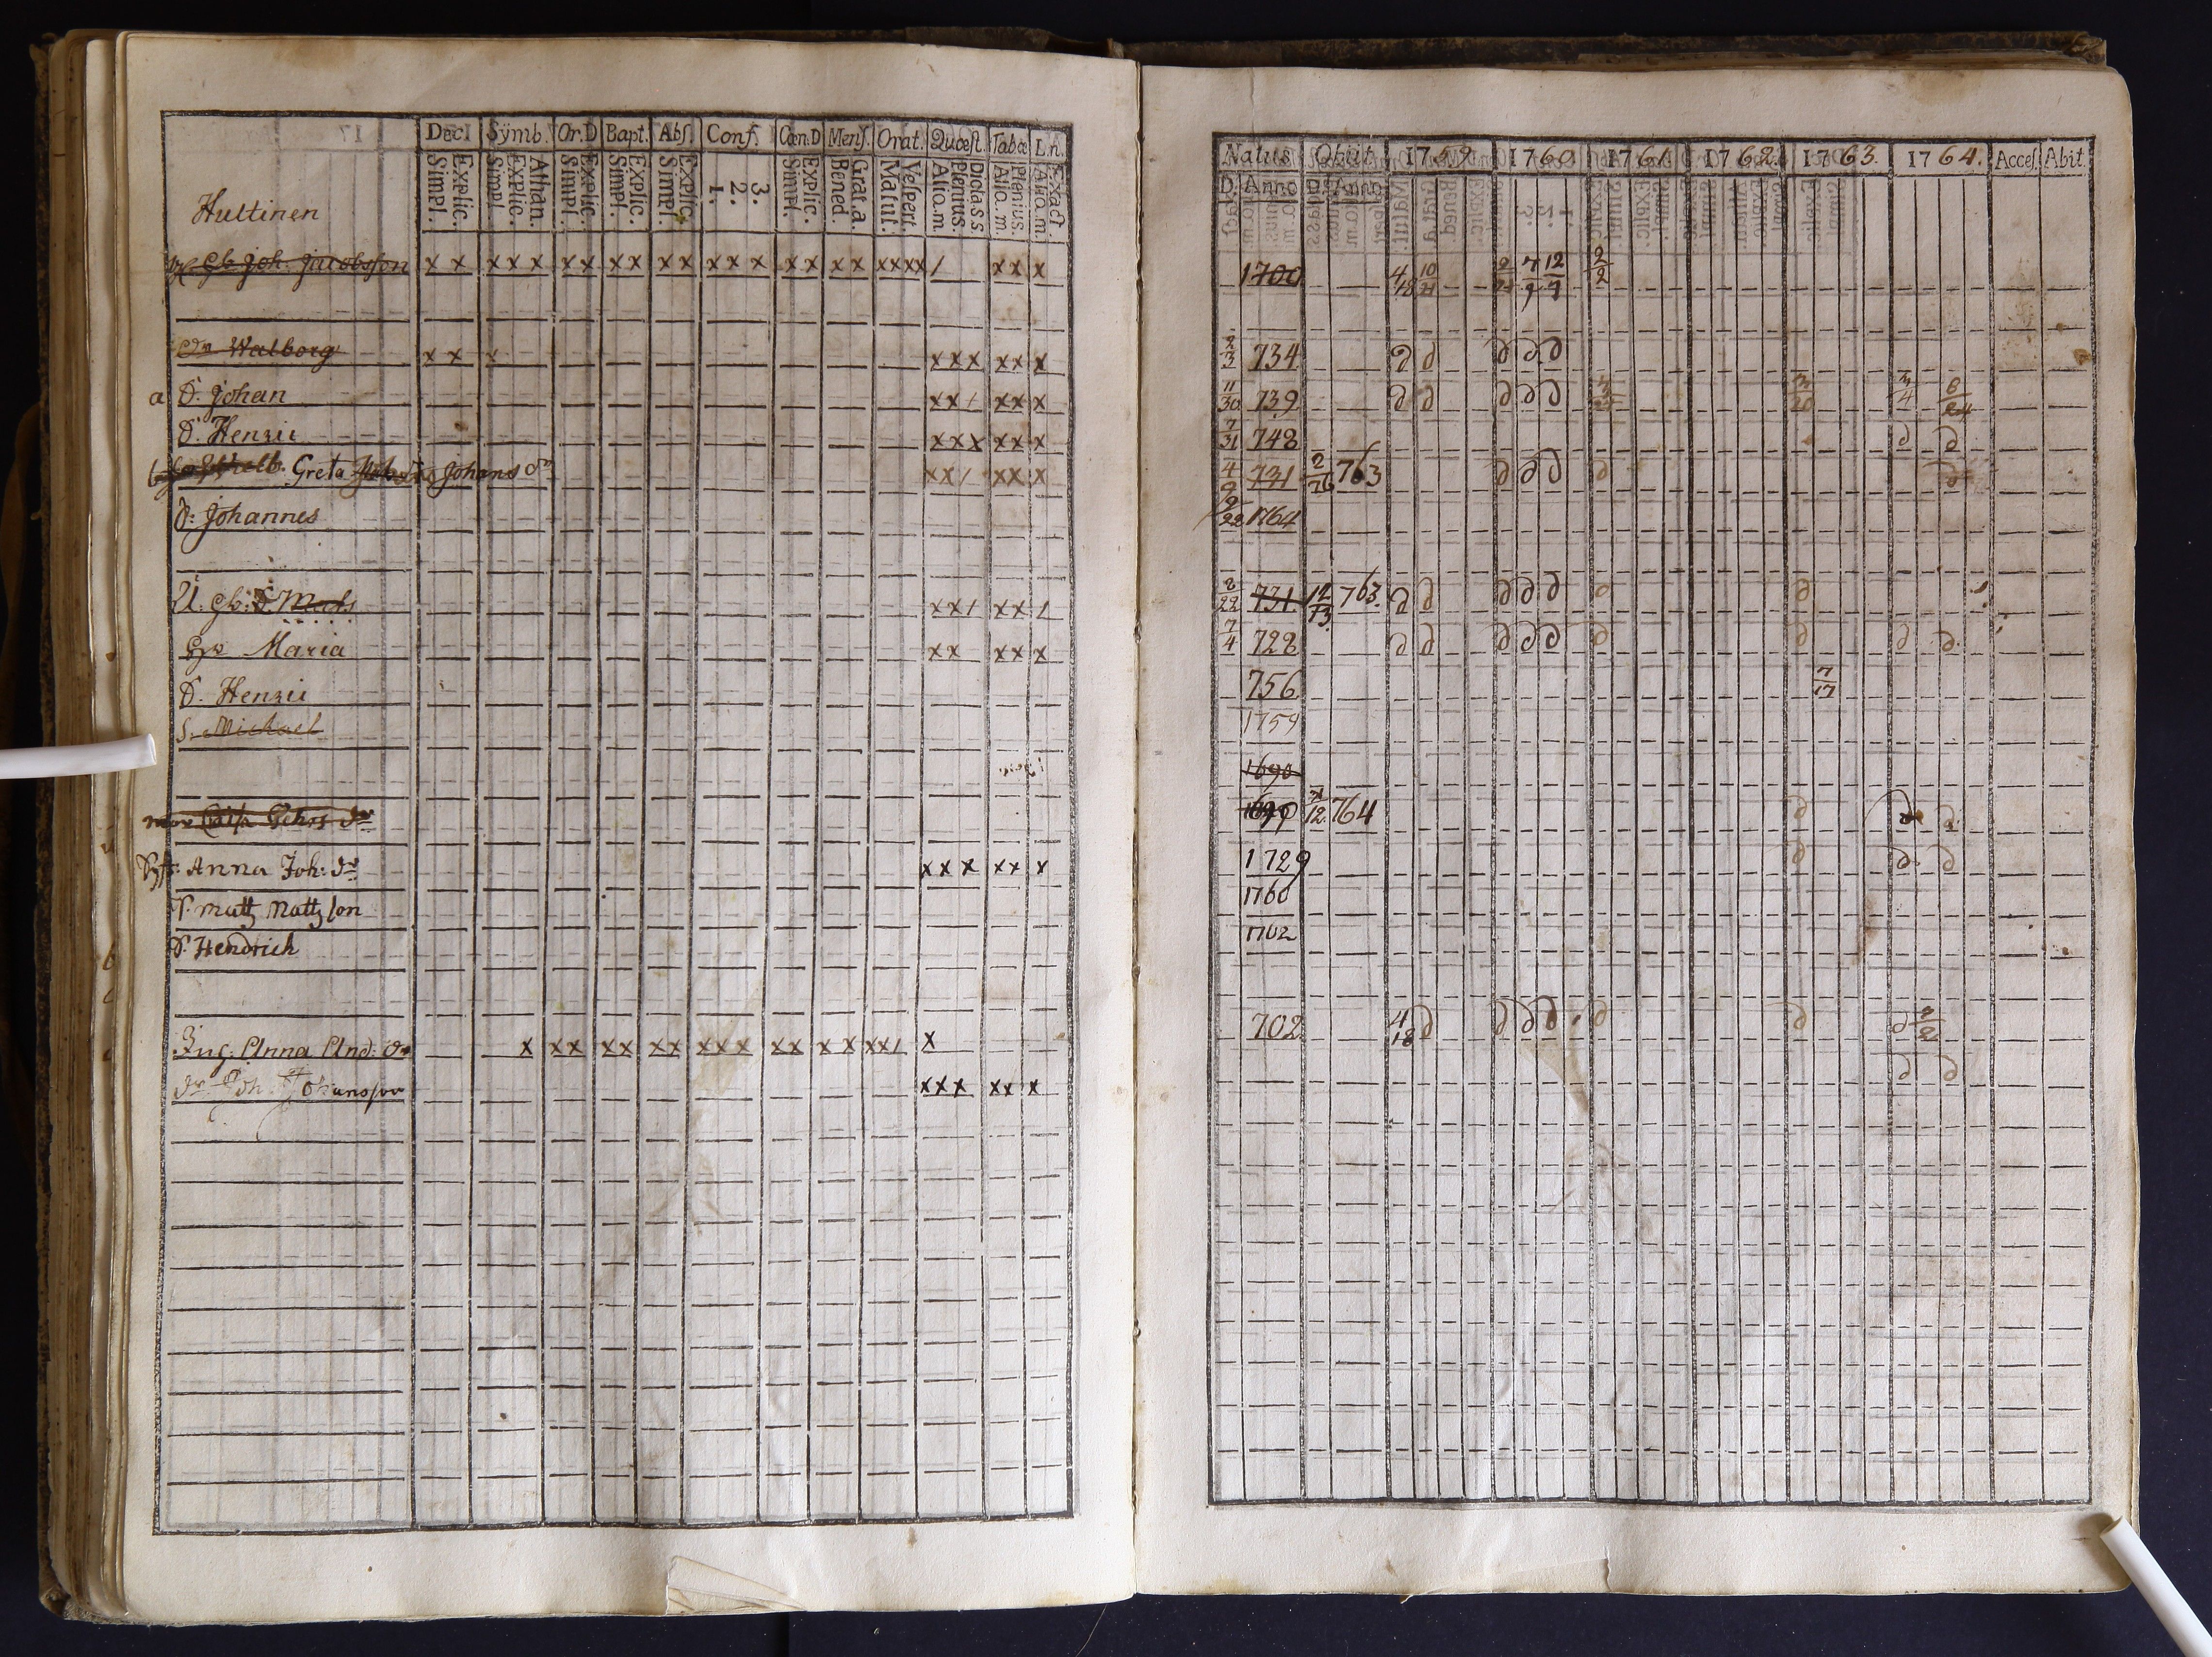 Decl Sÿmb. Or.D Bapt. Abs. Conf. Cœn.D Mens. Orat. Quæst. Tabæ L.n.
Simpl. Explic. Simpl. Explic. Athan. Simpl. Explic. Simpl. Explic. Simpl. Explic. 1. 2. 3. Simpl. Explic. Bened. Grat.a. Matut. Vespert. Alio.m. Plenius. Dictass Alio.m. Plenius. Alio.m. Exact.
Hultinen
Joh. Jacobsson x x x x x x x x x x x x x x x x x x x xxxx / x x x
Walborg x x x x x x x x x
a S. Johan x x / x x x
S. Henric x x x x x x
b Greta Johans dr x x / x x x
S: Johannes
U. gb: S. Mats x x / x x /
Maria x x x x x
S. Henric
S. Michael
Anna Joh: dr x x x x x x
S. Matts Mattsson
S. Hendrich
Ing. Anna And: dr x x x x x x x x x x x x x x x x x / x
Joh. Johansson x x x x x x
Natus Obiit 1759 1760 1761. 1762. 1763. 1764. Acces. Abit.
D. Anno D. Anno
1700 4/18 10/21 7/9 12/7 2/2
2/3 734 d d d d d
11/30 739 d d d d d 3/20 3/4 8/24
7/31 748 d d
4/9 731 2/26 763 d d d d d
9/22 1764
8/22 731 12/13 763. d d d d d d d
7/4 728 d d d d d d d d d
756 7/17
1759
1690
12 764 d d
1729 d d d
1760
1762
702 4/18 d d d d d d d
d d